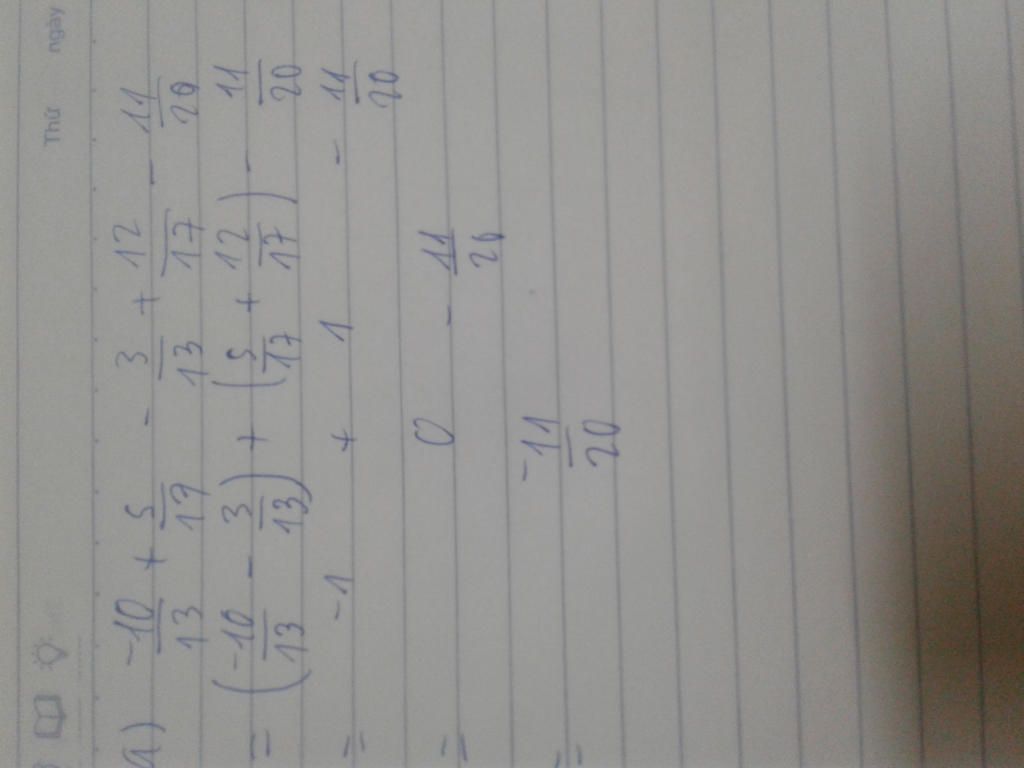 Thứ ngày
a) -10/13 + 5/17 - 3/13 + 12/17 - 11/20
= (-10/13 - 3/13) + (5/17 + 12/17) - 11/20
= -1 + 1 - 11/20
= 0 - 11/20
= -11/20